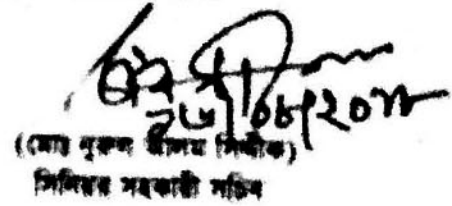 (মোঃ নূরুল আলম সিদ্দীক)
সিনিয়র সহকারী সচিব